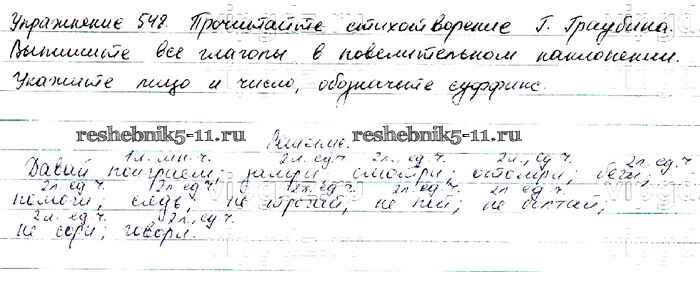 Упражнение 548. Прочитайте стихотворение Г. Граубина.
Выпишите все глаголы в повелительном наклонении.
Укажите лицо и число, обозначьте суффикс.
reshebnik5-11.ru reshebnik5-11.ru
Решение.
1л. мн. ч. 2л. ед ч. 2л. ед ч. 2л. ед ч. 2л. ед. ч.
Давай поиграем; замри смотри; отомри; беги;
2л ед ч. 2л ед ч. 2л. ед ч. 2л. ед ч. 2л ед ч.
помоги, не трогай, не пей; не болтай;
2л. ед ч. 2л. ед ч.
не сори; говори.